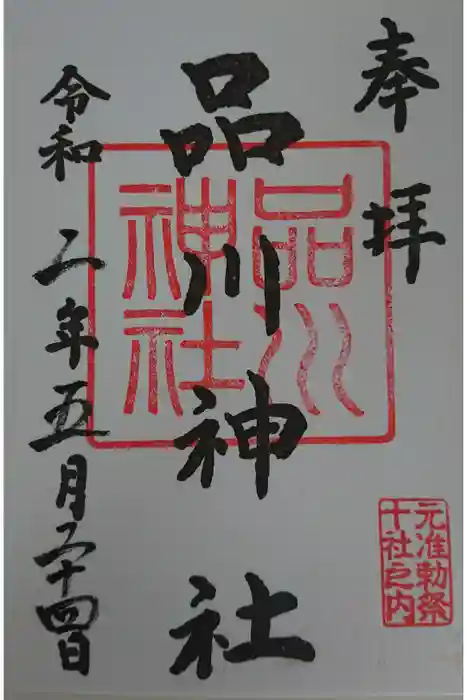 奉拝
品川神社
品川
神社
令和二年五月二十四日
元准勅祭
十社之内